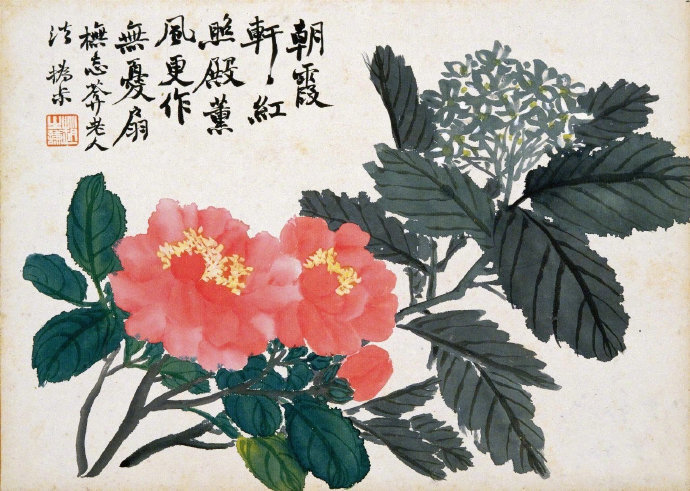 朝霞
軒〻紅
照殿薰
風更作
無憂扇
橅忘葊老人
法 撝尗